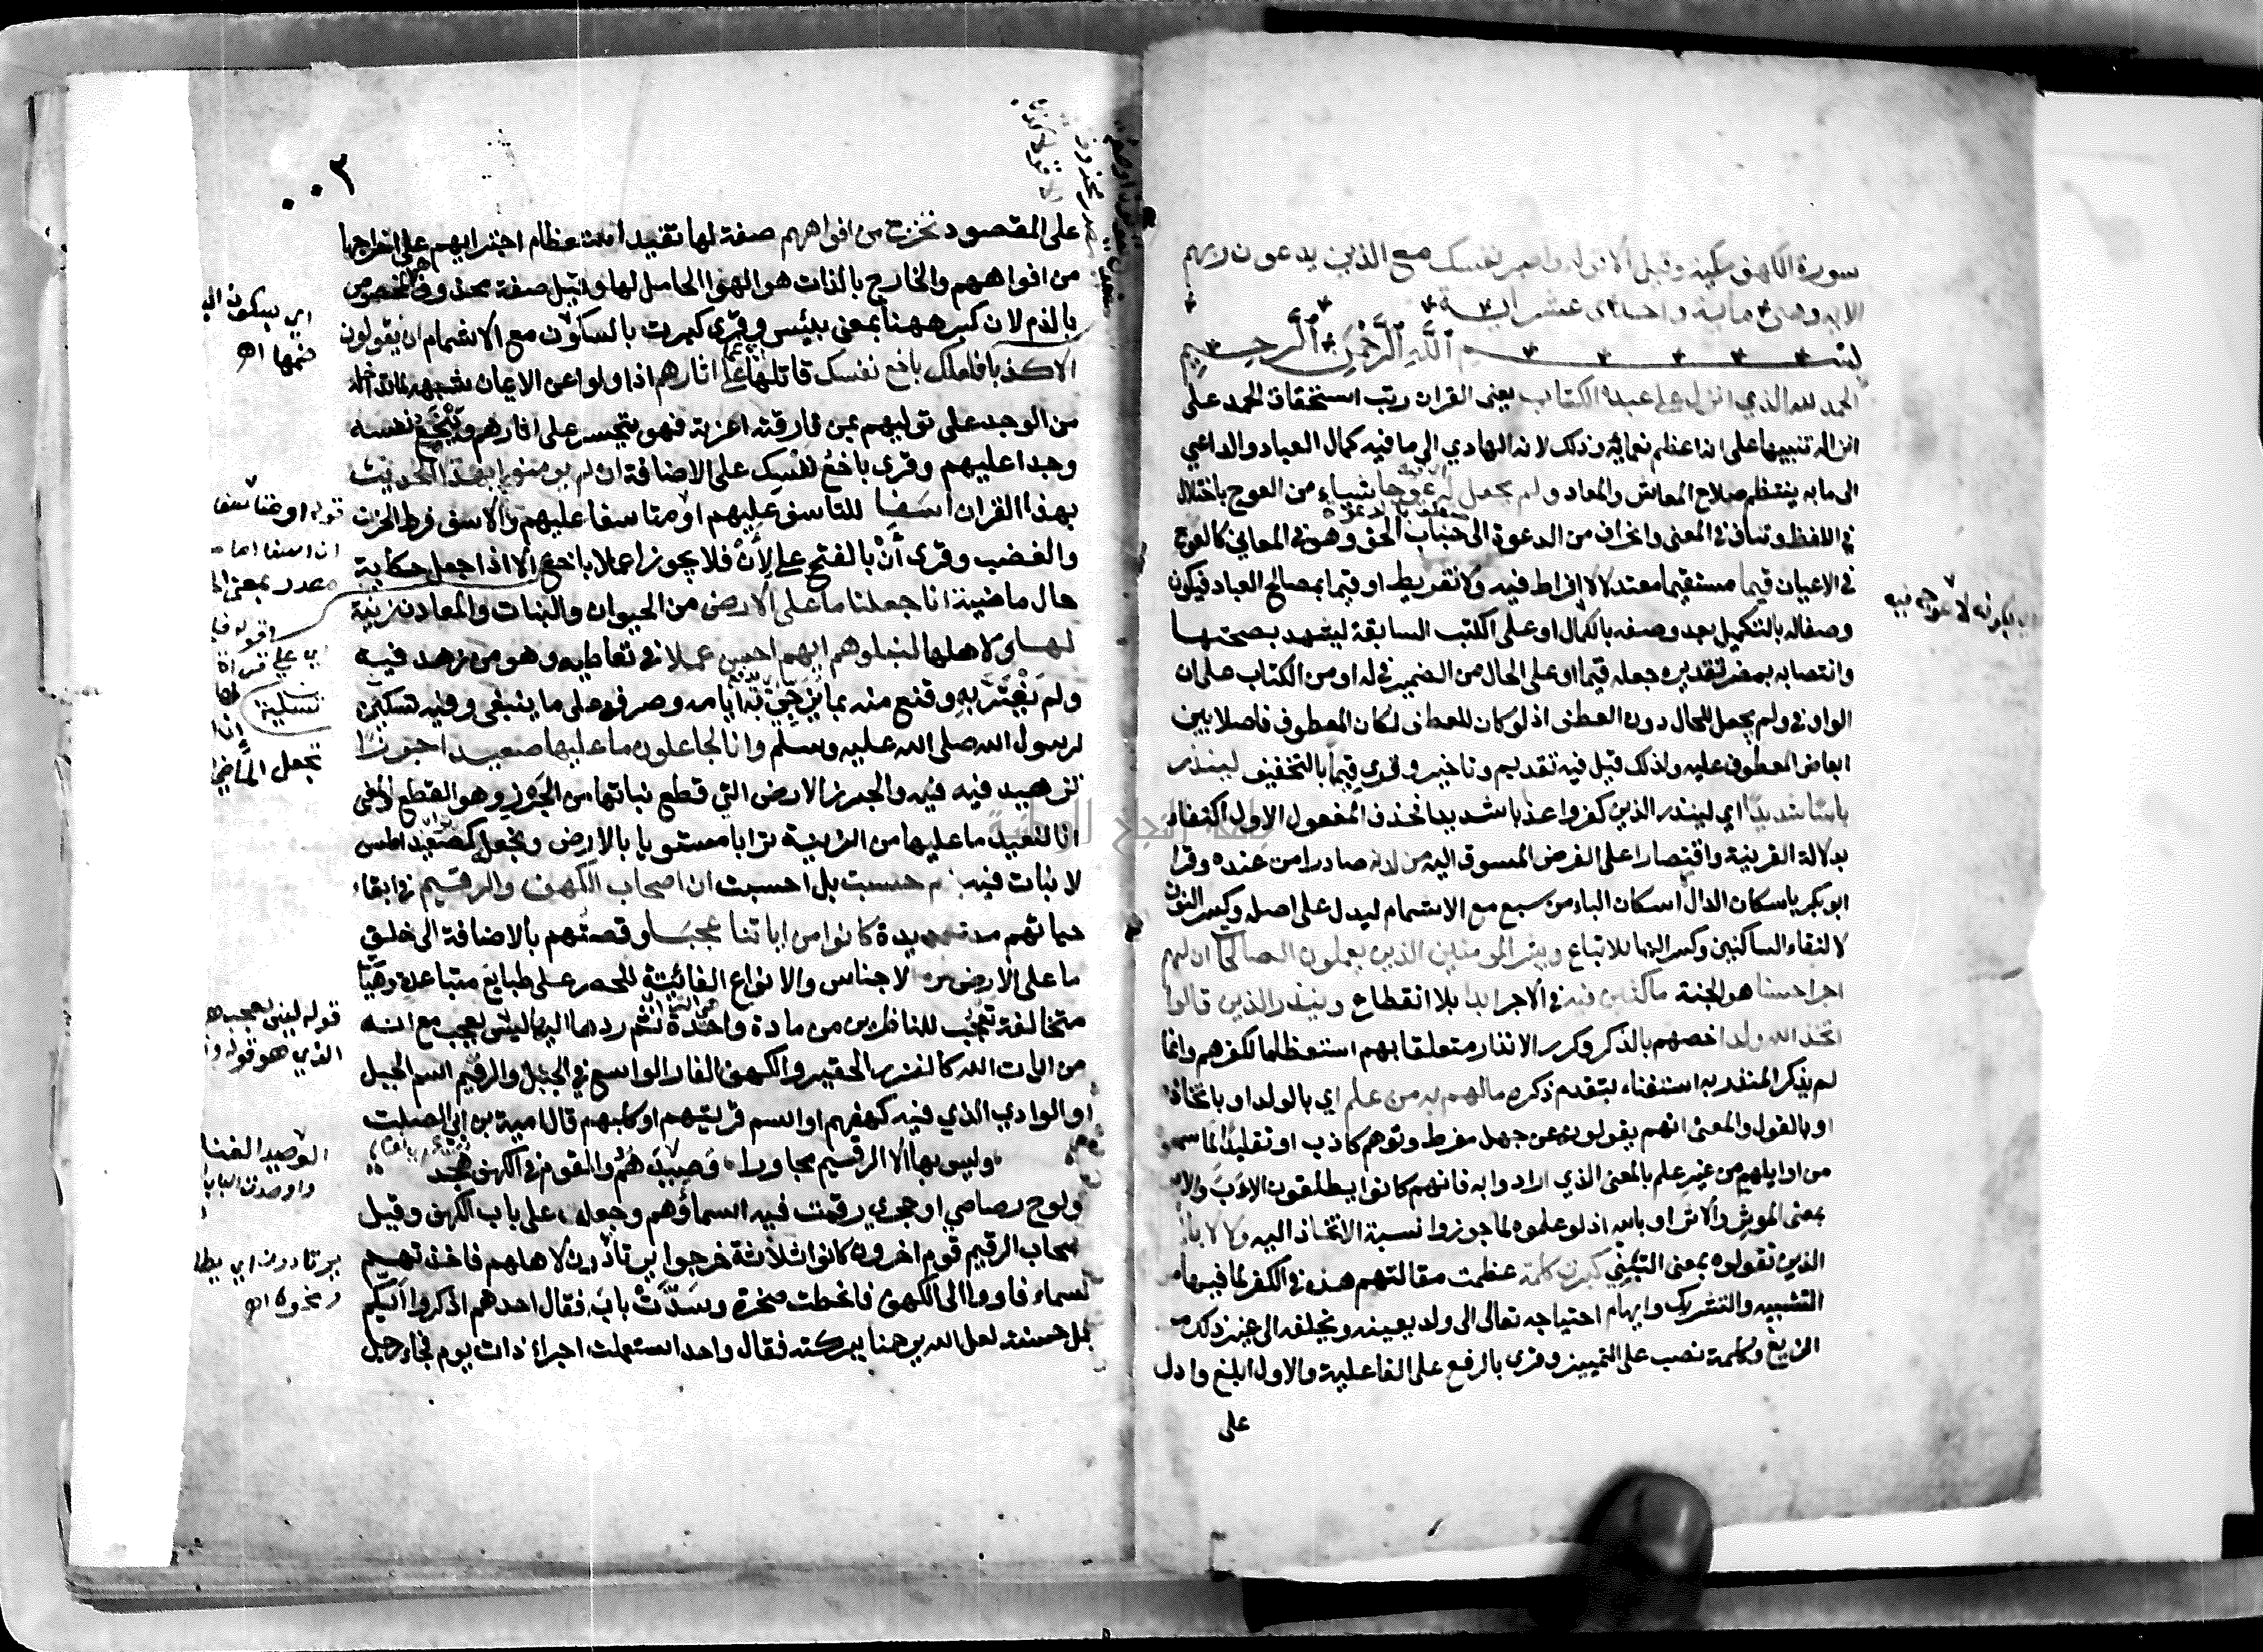 سورة الكهف مكية وقيل الا قوله واصبر نفسك مع الذين يدعون ربهم
الاية وهي ماية واحدى عشر اية
بسم الله الرحمن الرحيم
الحمد لله الذي انزل على عبده الكتاب يعنى القران رتب استحقاق الحمد على
انزاله تنبيها على انه اعظم نعمائه وذلك لانه الهادي الى ما فيه كمال العباد والداعي
الى ما به ينتظم صلاح المعاش والمعاد ولم يجعل له عوجا شياء من العوج باختلال
في اللفظ وتناف في المعنى وانحراف من الدعوة الى جناب الحق وهو في المعاني كالعوج
في الاعيان قيما مستقيما معتدلا لا افراط فيه ولا تفريط او قيما بمصالح العباد فيكون
وصفاله بالتكميل بعد وصفه بالكمال او على الكتب السابقة ليشهد بصحتها
وانتصابه بمضمر تقديره جعله قيما او على الحال من الضمير في له او من الكتاب على ان
الواو في ولم يجعل للحال دون العطف اذ لو كان للعطف لكان المعطوف فاصلا بين
ابعاض المعطوف عليه ولذلك قيل فيه تقديم وتاخير وقرى قيما بالتخفيف لينذر
باسا شديدا اي لينذر الذين كفروا عذابا شديدا فحذف المفعول الاول اكتفاء
بدلالة القرينة واقتصارا على الغرض المسوق اليه من لدنه صادرا من عنده وقرا
ابو بكر باسكان الدال اسكان الباء من سبع مع الاشمام ليدل على اصله وكسر النون
لالتقاء الساكنين وكسر الها للاتباع ويبشر المومنين الذين يعملون الصالحات ان لهم
اجرا حسنا هو الجنة ماكثين فيه في الاجر ابدا بلا انقطاع وينذر الذين قالوا
اتخذ الله ولدا خصهم بالذكر وكرر الانذار متعلقا بهم استعظاما لكفرهم وانما
لم يذكر المنذر به استغناء بتقدم ذكره مالهم به من علم اي بالولد او باتخاذه
او بالقول والمعنى انهم يقولونه عن جهل مفرط وتوهم كاذب او تقليد لما سمعوه
من اوايلهم من غير علم بالمعنى الذي ارادوا به فانهم كانوا يطلقون الاب والابن
بمعنى الموثر والاثر او بالله اذ لو علموه لما جوزوا نسبة الاتخاذ اليه ولا لابائهم
الذين تقولوه بمعنى التبني كبرت كلمة عظمت مقالتهم هذه في الكفر لما فيها من
التشبيه والتشريك وايهام احتياجه تعالى الى ولد يعينه ويخلفه الى غير ذلك من
الزيغ وكلمة نصب على التمييز وقرى بالرفع على الفاعلية والاول ابلغ وادل
على
على المقصود تخرج من افواههم صفة لها تفيد استعظام اجترايهم على اخراجها
من افواههم والخارج بالذات هو الهوا الحامل لها وقيل صفة محذوف هو المخصوص
بالذم لان كبر ههنا بمعنى بيئس وقرى كبرت بالسكون مع الاشمام ان يقولون
الا كذبا فلعلك باخع نفسك قاتلها على اثارهم اذا ولوا عن الايمان شبهه لما تداخله
من الوجد على توليهم بمن فارقته اعزته فهو يتحسر على اثارهم ويبخع نفسه
وجدا عليهم وقرى باخع نفسك على الاضافة ان لم يومنوا بهذا الحديث
بهذا القران اسفا للتاسف عليهم او متاسفا عليهم والاسف فرط الحزن
والغضب وقرى أن بالفتح على لأن فلا يجوز اعمال باخع الا اذا جعل حكاية
حال ماضية انا جعلنا ما على الارض من الحيوان والنبات والمعادن زينة
لها ولاهلها لنبلوهم ايهم احسن عملا في تعاطيه وهو من زهد فيه
ولم يغتر به وقنع منه بما يزجي به ايامه وصرفه على ما ينبغى وفيه تسكين
لرسول الله صلى الله عليه وسلم وانا لجاعلون ما عليها صعيدا جرزا
تزهيد فيه والجرز الارض التي قطع نباتها من الجرز وهو القطع والمعنى
انا لنعيد ما عليها من الزينة ترابا مستويا بالارض ونجعله كصعيد املس
لا نبات فيه ام حسبت بل احسبت ان اصحاب الكهف والرقيم في ابقاء
حياتهم مدة مديدة كانوا من اياتنا عجبا وقصتهم بالاضافة الى خلق
ما على الارض من الاجناس والانواع الفائتة للحصر على طبايع متباعدة وهيئات
متخالفة تعجب للناظرين من مادة واحدة ثم ردها اليها ليس بعجب مع انه
من ايات الله كالنزر الحقير والكهف الغار الواسع في الجبل والرقيم اسم الجبل
او الوادي الذي فيه كهفهم او اسم قريتهم او كلبهم قال امية بن ابي الصلت
وليس بها الا الرقيم مجاورا وصيدهم والقوم في الكهف هجد
ولوح رصاصي او حجري رقمت فيه اسماؤهم وجعلت على باب الكهف وقيل
اصحاب الرقيم قوم اخرون كانوا ثلاثة خرجوا يرتادون لاهلهم فاخذتهم
السماء فاووا الى الكهف فانحطت صخرة وسدت بابه فقال احدهم اذكروا ايكم
عمل حسنة لعل الله يرحمنا ببركته فقال واحد استعملت اجراء ذات يوم فجاء رجل
اي بسكون البا
ضمها اه
تسلية
تجعل الماضي
الوصيد الفنا
يرتادون اي يطلبون